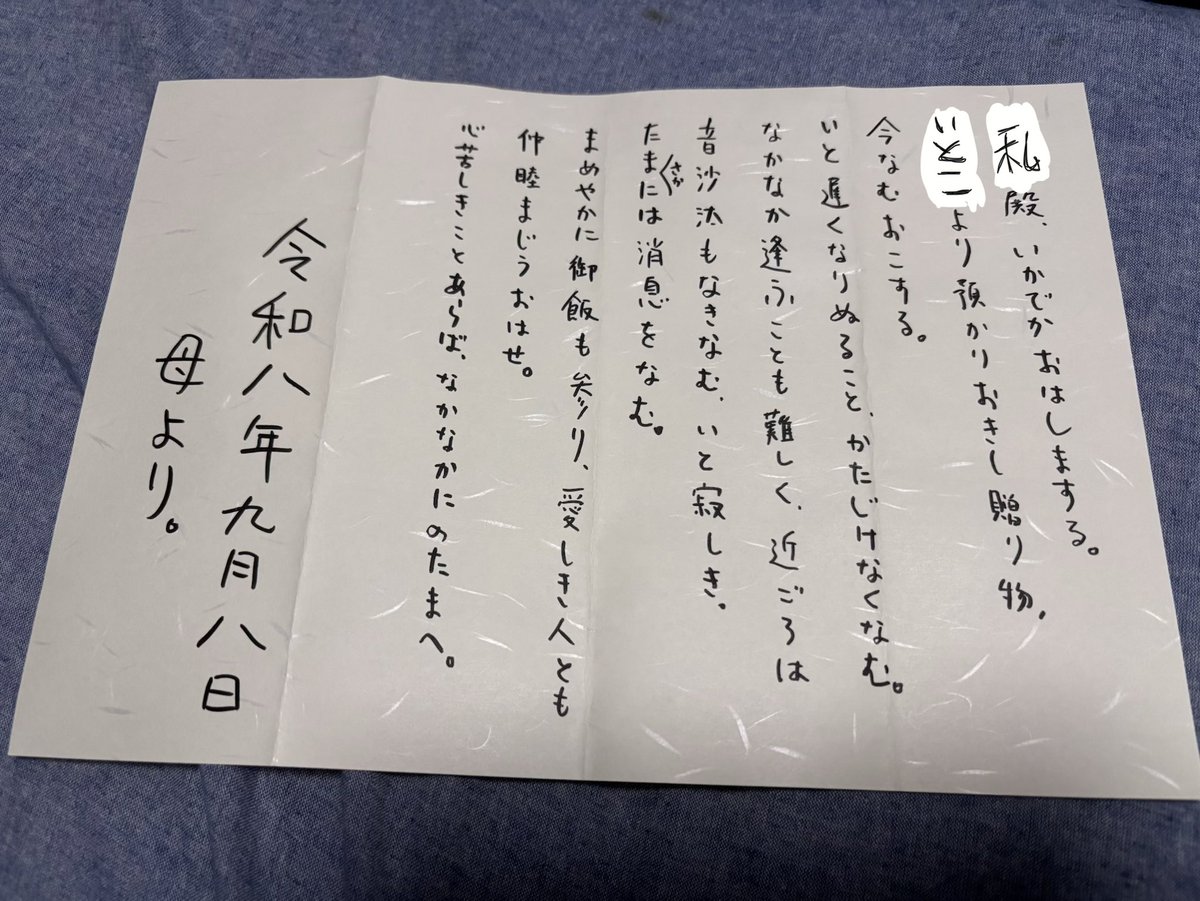 私殿、いかでかおはしまする。
いとこより預かりおきし贈り物、
今なむおこする。
いと遅くなりぬること、かたじけなくなむ。
なかなか逢ふことも難しく、近ごろは
音沙汰もなきなむ、いと寂しき。
たまさかには消息をなむ。
まめやかに御飯も参り、愛しき人とも
仲睦まじうおはせ。
心苦しきことあらば、なかなかにのたまへ。
令和八年九月八日
母より。